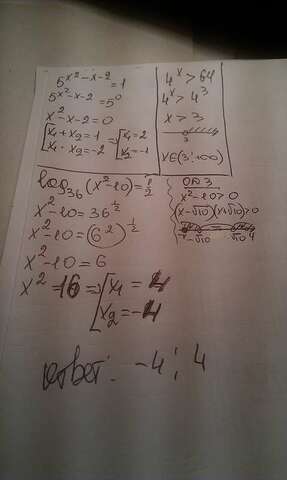 5^{x²-x-2}=1
5^{x²-x-2}=5⁰
x²-x-2=0
[x₁+x₂=1 ⇒ [x₁=2
x₁·x₂=-2 x₂=-1
4^x>64
4^x>4³
x>3
3
x∈(3;+∞)
log₃₆(x²-10)=1/2
x²-10=36^{1/2}
x²-10=(6²)^{1/2}
x²-10=6
x²=16⇒[x₁=4
x₂=-4
ОДЗ
x²-10>0
(x-√10)(x+√10)>0
-4 -√10 √10 4
ответ: -4; 4